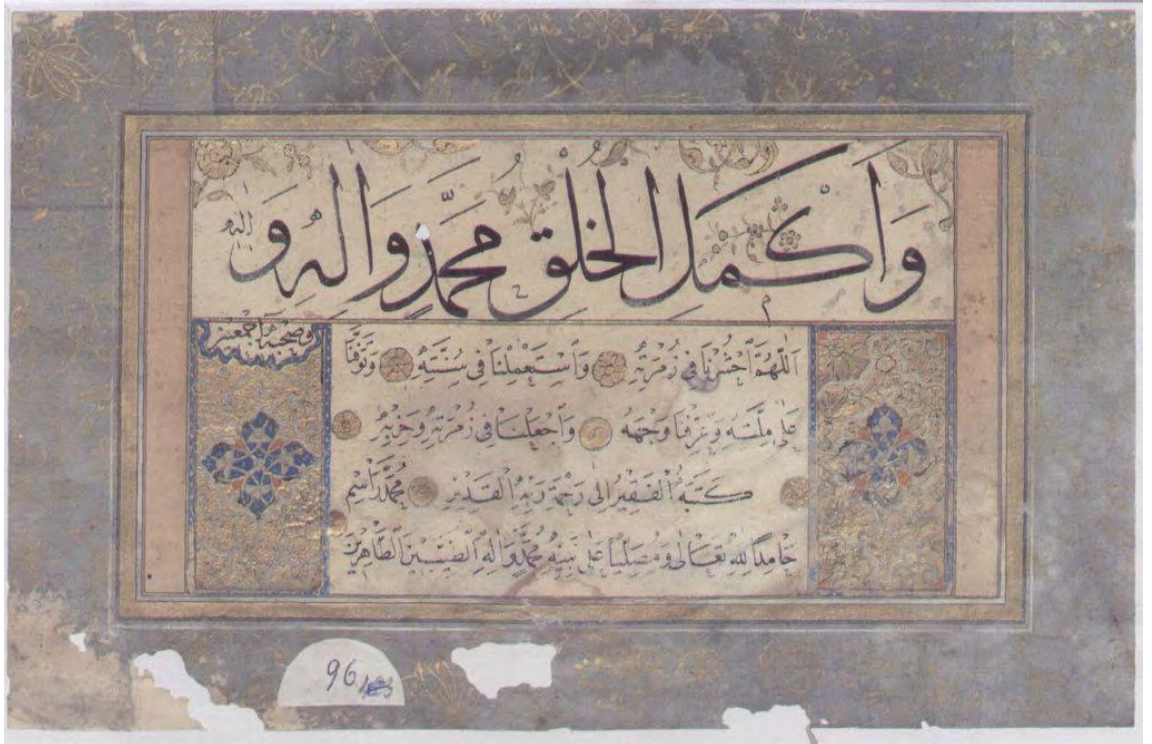 وَاَكْمَلِ الخَلْقِ مُحَمَّدٍ وَالِهِ وَ
اله و
وصحبه اجمعين
اَللّٰهُمَّ احْشُرْنَا فِي زُمْرَتِهِ وَاسْتَعْمِلْنَا فِي سُنَّتِهِ وَتَوَفَّنَا
عَلٰى مِلَّتِهِ وَعَرِّفْنَا وَجْهَهُ وَاجْعَلْنَا فِي زُمْرَتِهِ وَحِزْبِهِ
كَتَبَهُ الْفَقِيرُ اِلٰى رَحْمَةِ رَبِّهِ الْقَدِيرِ مُحَمَّد
حَامِدًا لِلّٰهِ تَعَالٰى وَمُصَلِّيًا عَلٰى نَبِيِّهِ مُحَمَّدٍ وَاٰلِهِ الطَّيِّبِينَ الطَّاهِرِينَ
96